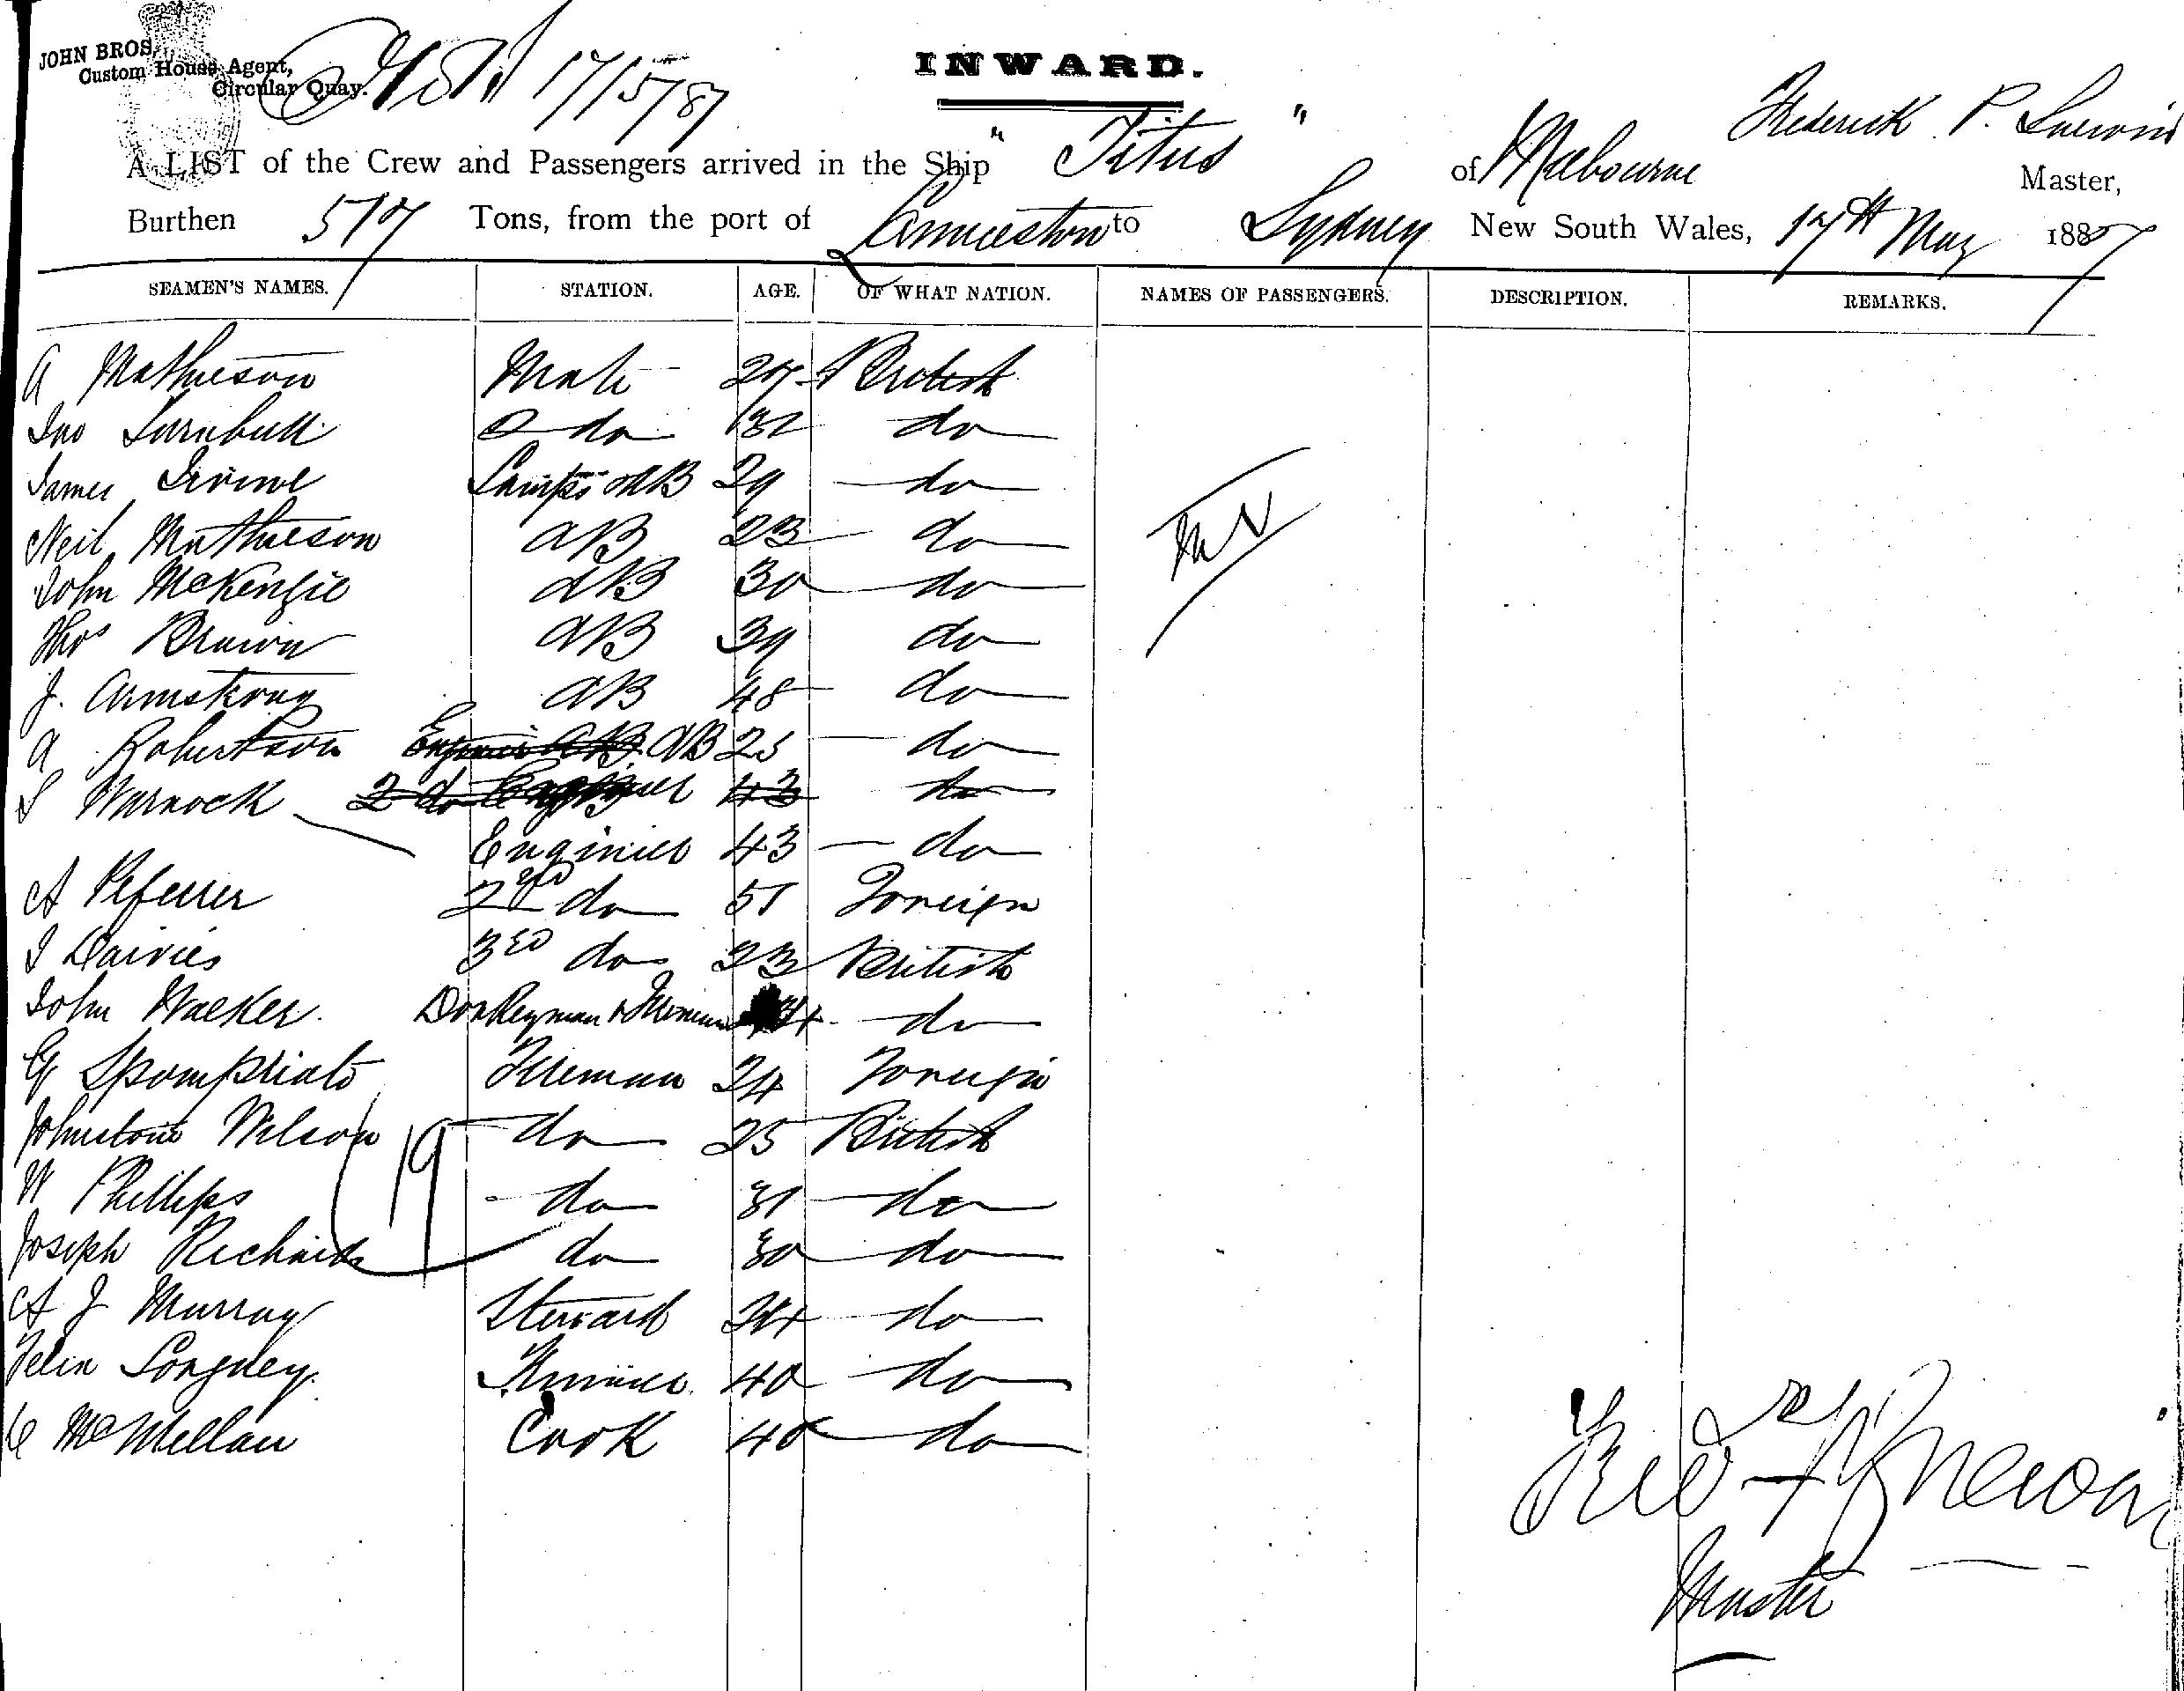 JOHN BROS,
Custom House Agent,
Circular Quay.
17/5/87
INWARD.
Frederick P.
A LIST of the Crew and Passengers arrived in the Ship "Titus" of Melbourne Master,
Burthen 517 Tons, from the port of Launceston to Sydney New South Wales, 17th May 1887
SEAMEN'S NAMES. STATION. AGE. OF WHAT NATION. NAMES OF PASSENGERS. DESCRIPTION. REMARKS.
A Mathieson Mate 27 British
Jno Turnbull 2 do 32 do
James Irvine Lamps AB 29 do
Neil Mathieson AB 23 do
John McKenzie AB 30 do
Thos Brown AB 39 do
J. Armstrong AB 48 do
A Robertson AB 25 do
S Warnock 2 do 43 do
Engineer 43 do
A 2nd do 51 Foreign
J Dairies 3rd do 23 British
John Walker Donkeyman & Fireman do
G Fireman 24 Foreign
Johnstone Wilson do 25 British
19
W Phillips do 31 do
Joseph Richards do 30 do
A J Murray Steward 34 do
Longney 40 do
C McMellan Cook 40 do
Fred
Master